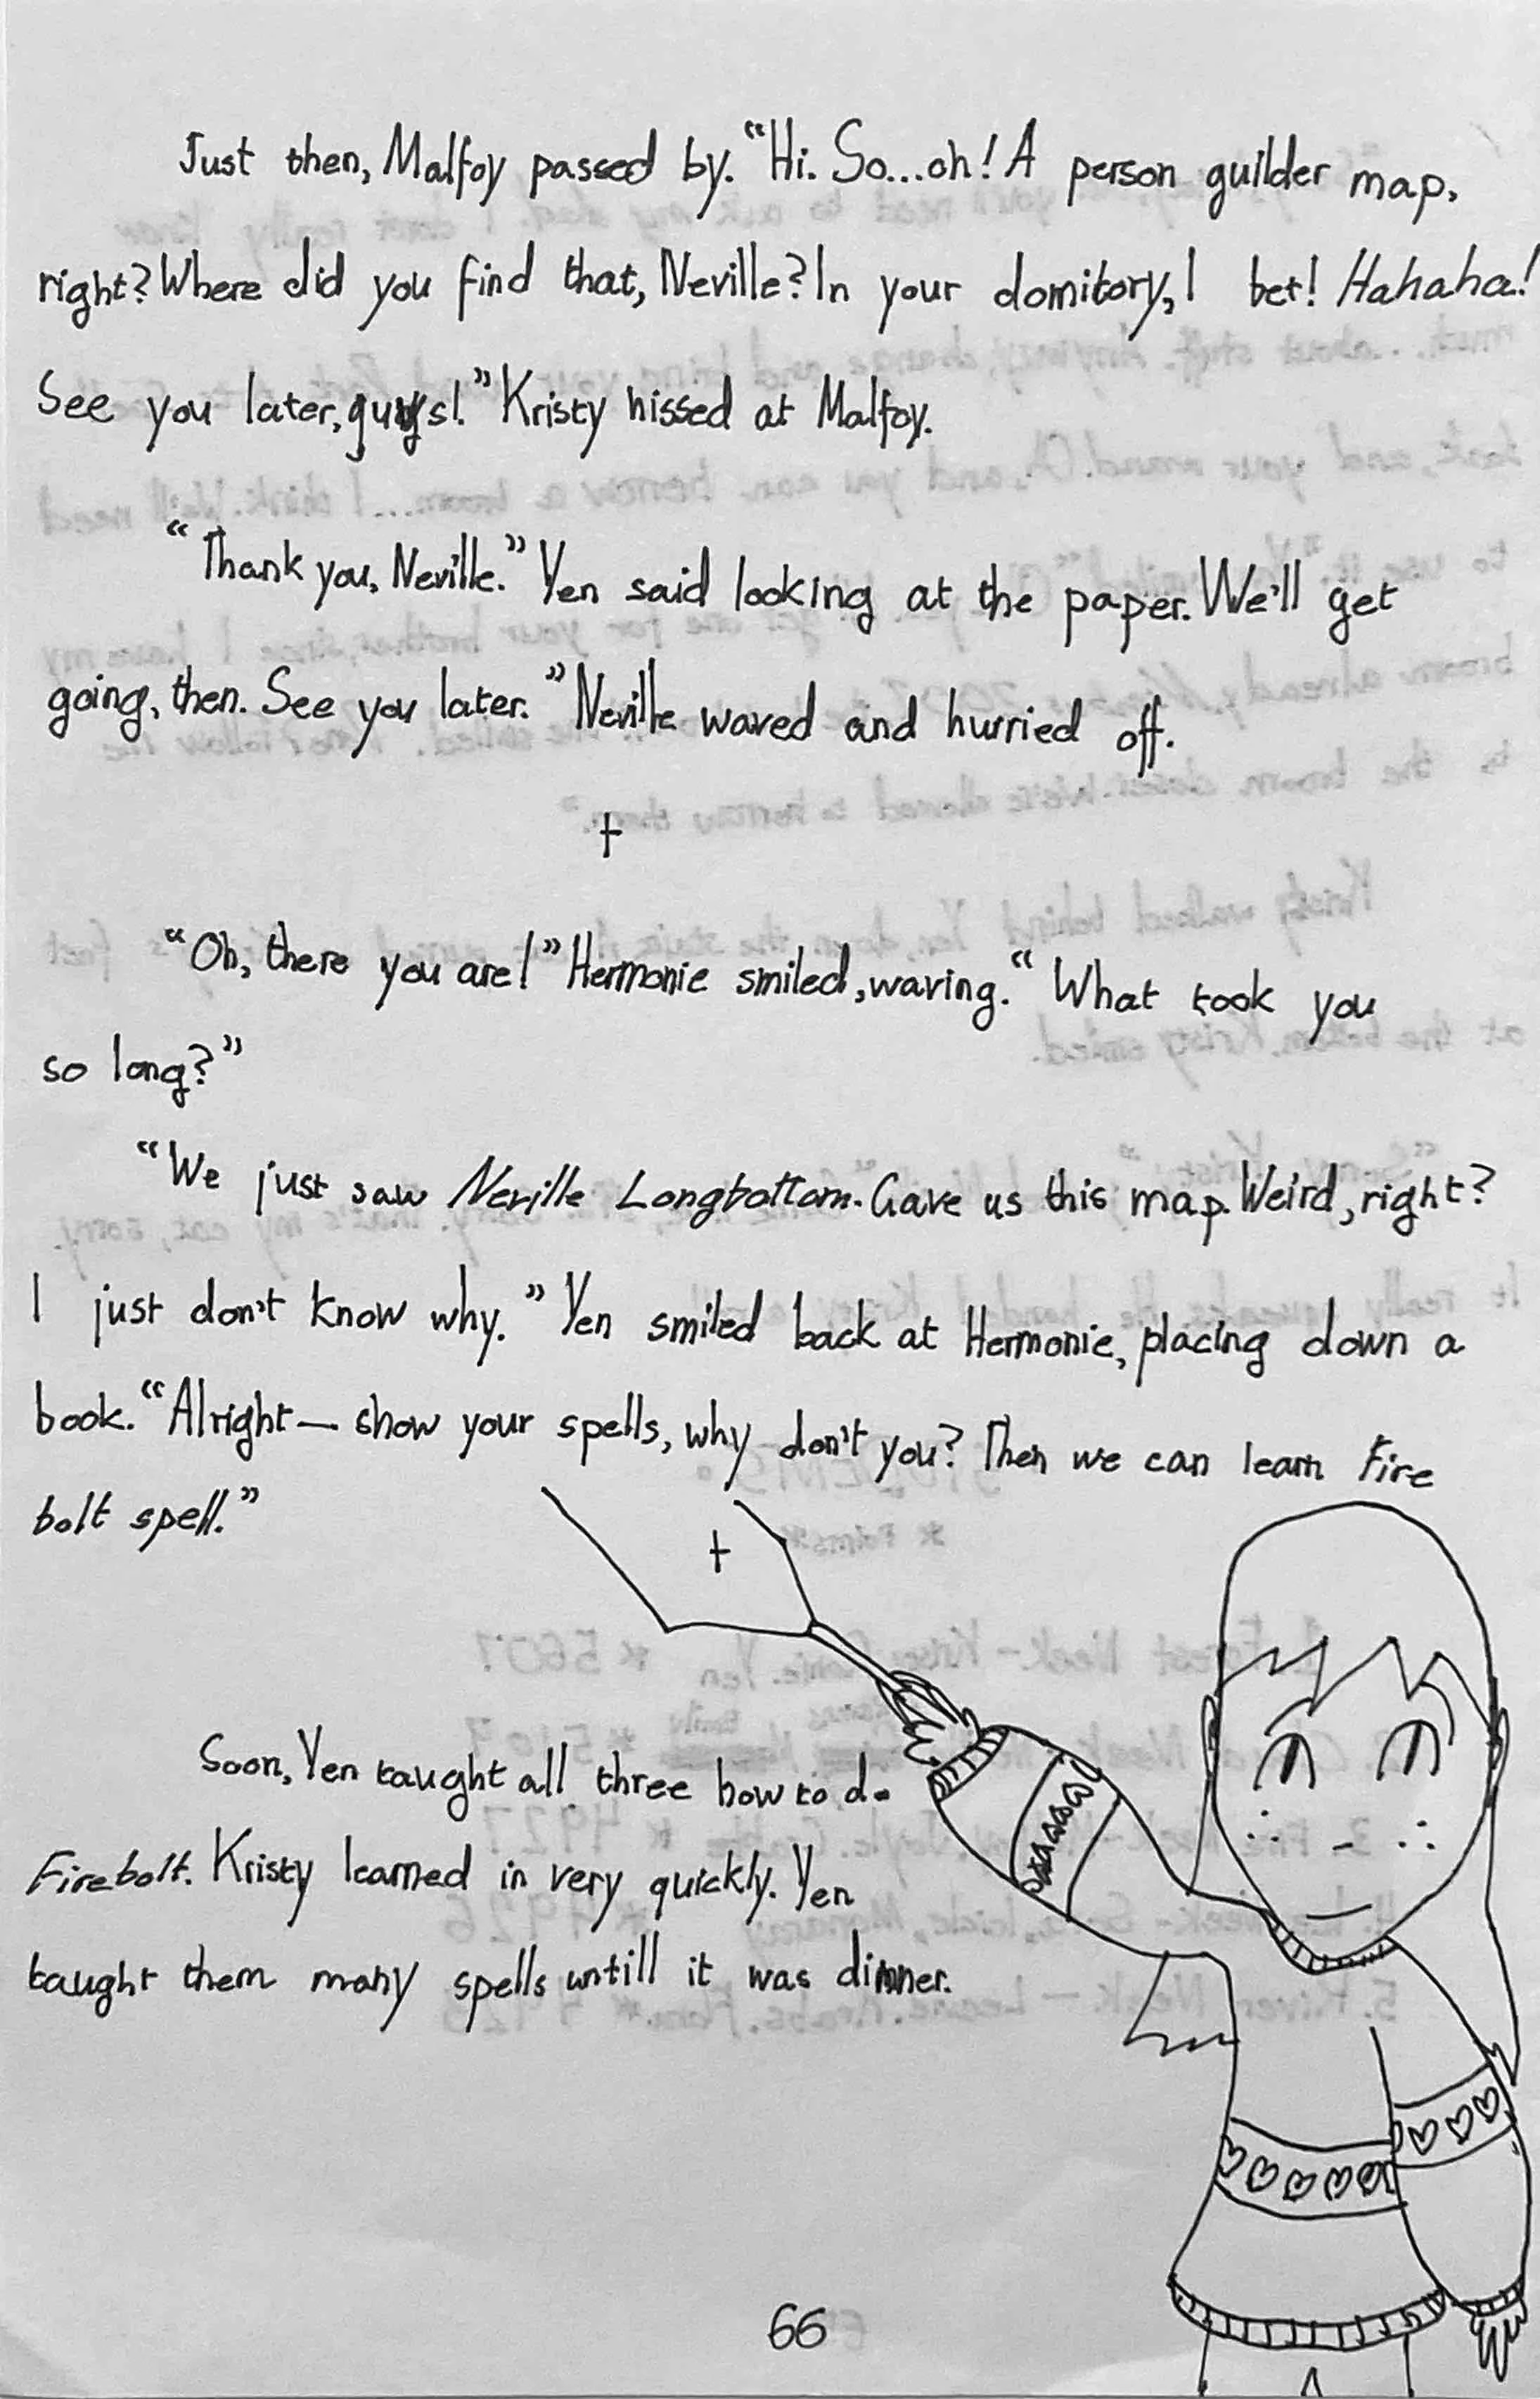 Just then, Malfoy passed by. “Hi. So...oh! A person guilder map,
right? Where did you find that, Neville? In your domitory, I bet! Hahaha!
See you later, guys!” Kristy hissed at Malfoy.
“Thank you, Neville.” Yen said looking at the paper. We'll get
going, then. See you later.” Neville waved and hurried off.
†
“Oh, there you are!” Hermonie smiled, waving. “What took you
so long?”
“We just saw Neville Longbottom. Gave us this map. Weird, right?
I just don't know why.” Yen smiled back at Hermonie, placing down a
book. “Alright— show your spells, why don't you? Then we can learn Fire
bolt spell.”
†
Soon, Yen taught all three how to do
Firebolt. Kristy learned in very quickly. Yen
taught them many spells untill it was dinner.
66